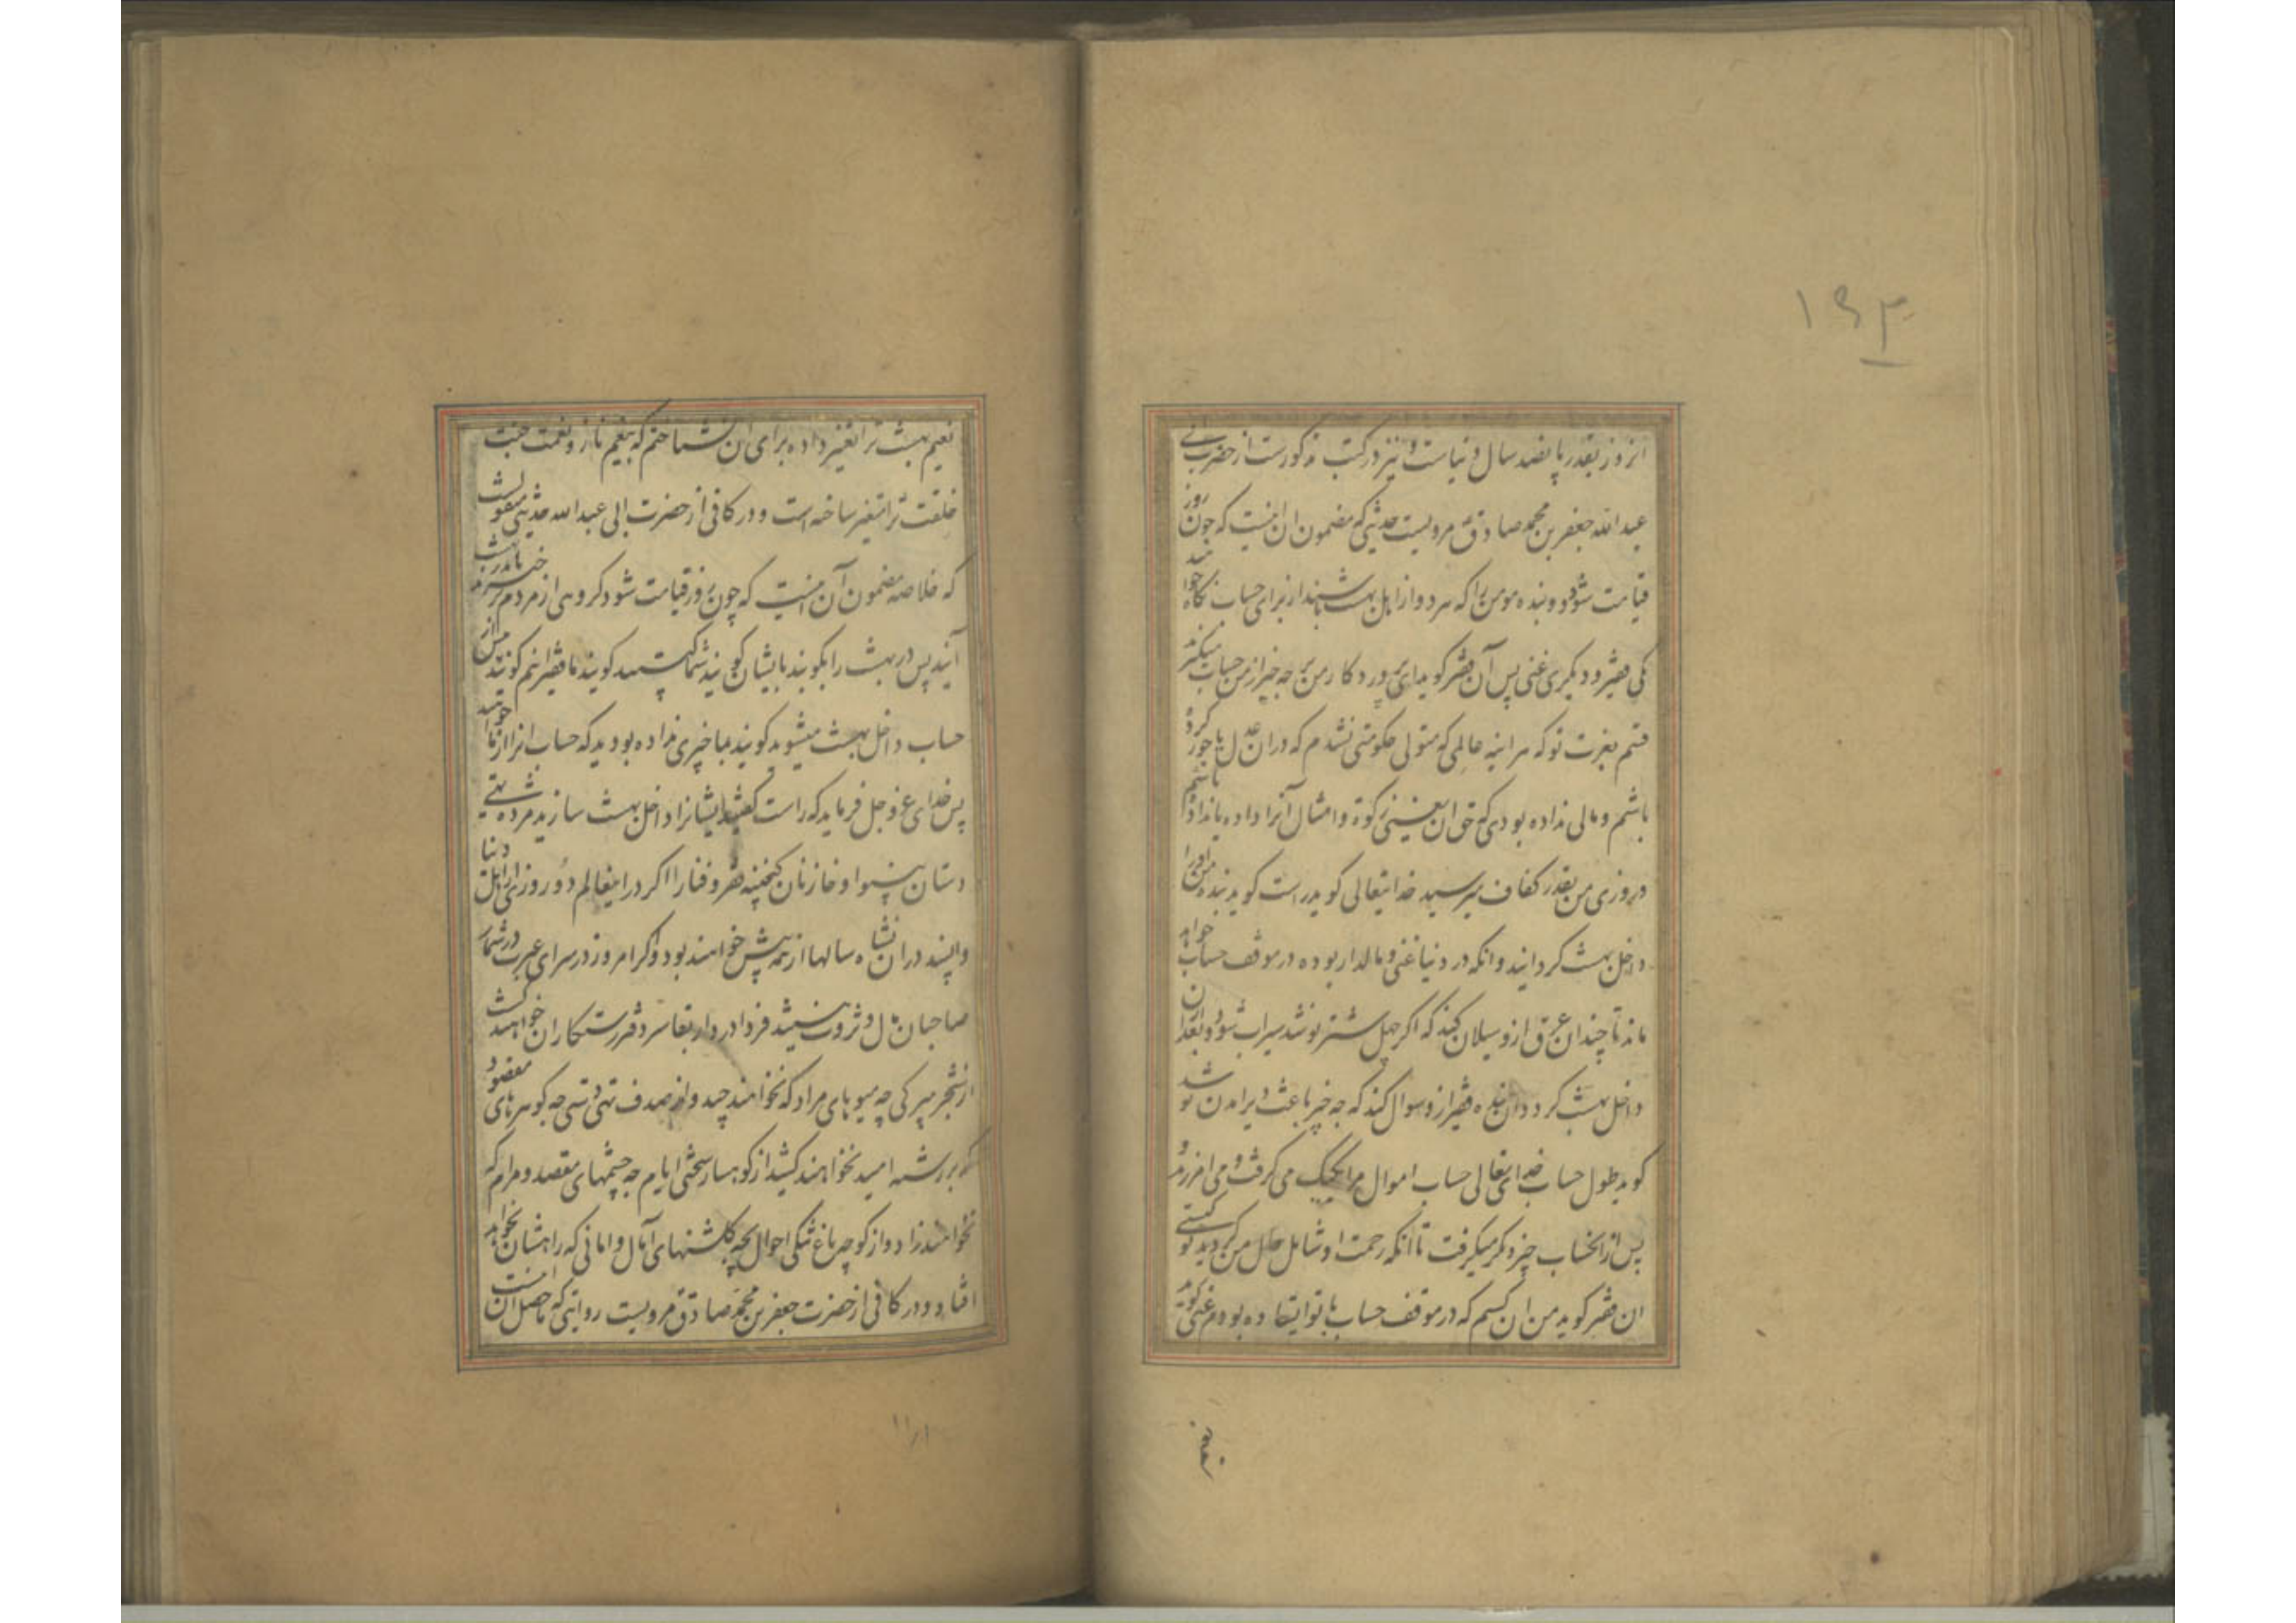 ۱۹۳
انروز بقدر پانصد سال دنیاست و نیز در کتب مذکورست از حضرت ابی
عبدالله جعفر بن محمد صادق مرویست حدیثی که مضمون ان اینست که چون روز
قیامت شود دو بنده مومن را که هر دو از اهل بهشت باشند از برای حساب نگاه
یکی فقیر و دیگری غنی پس آن فقیر گوید ای پروردگار من بر چه چیز از من حساب میکنند
قسم بعزت تو که هر اینه عالمی که متولی حکومتی نشدم که در ان عدل یا جور کرده
باشم و مالی نداده بودی که حق ان یعنی زکوة و امثال آنرا داده یا نداده باشم
و روزی من بقدر کفاف میرسید خدایتعالی گوید راست گوید بنده من او را
داخل بهشت گردانید و انکه در دنیا غنی و مالدار بوده در موقف حساب خواهد
ماند تا چندان عرق ازو سیلان کند که اگر چهل شتر نوشد سیراب شود و بعد از ان
داخل بهشت گردد و ان بنده فقیر ازو سوال کند که چه چیز باعث دیر امدن تو شد
گوید طول حساب خدایتعالی حساب اموال مرا یکیک می گرفت و می امرزید و
پس از انحساب چیز دیگر میگرفت تا آنکه رحمت او شامل حال من گردید تو کیستی
ان فقیر گوید من ان کسم که در موقف حساب با تو ایستاده بودم غنی گوید
نعیم
نعیم بهشت ترا تغییر داده برای ان نشناختم که بنعیم ناز و نعمت جنت
خلقت ترا متغیر ساخته است و در کافی از حضرت ابی عبدالله حدیثی منقولست
که خلاصه مضمون آن اینست که چون روز قیامت شود گروهی از مردم برخیزند تا بدر بهشت
آیند پس در بهشت را بکوبند بایشان گویند شما کیستید گویند ما فقیرانیم گویند پیش از
حساب داخل بهشت میشوید گویند بما چیزی نداده بودید که حساب انرا از ما خواهید
پس خدای عز و جل فرماید که راست گفتید ایشانرا داخل بهشت سازید مرده تهی
دستان بینوا و خازنان گنجینه فقر و فنا را اگر در اینعالم دو روزی از اهل دنیا
واپسند در ان نشاه سالها از همه پیش خواهند بود و اگر امروز در سرای عبرت در شمار
صاحبان مال و ثروت نیستند فردا در دار بقا سر دفتر رستگاران خواهند گشت
از شجر میر کی چه میوهای مراد که نخواهند چید و از صدف تهی دستی چه گوهرهای مقصود
که بر رشته امید نخواهند کشید از کوهسار سختی ایام چه چشمهای مقصد و مرام که
نخواهند زاد و از کوچه باغ تنگی احوال بچه گلشنهای آمال و امانی که راهشان نخواهد
افتاد و در کافی از حضرت جعفر بن محمد صادق مرویست روایتی که حاصل ان اینست